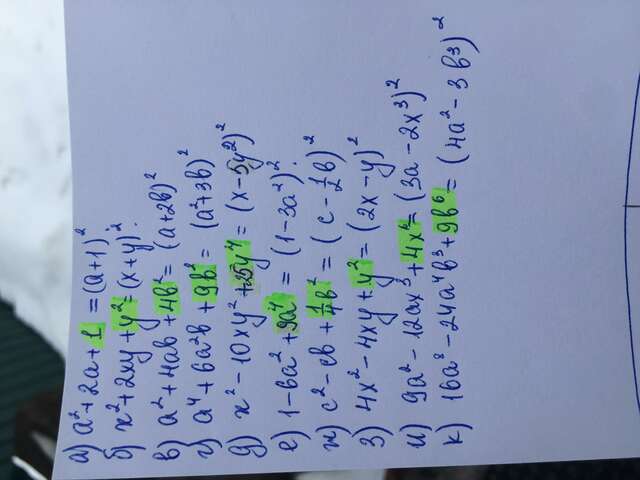 а) a²+2a+1 = (a+1)²
б) x²+2xy+y² = (x+y)²
в) a²+4ab+4b² = (a+2b)²
г) a⁴+6a²b+9b² = (a²+3b)²
д) x²-10xy²+25y⁴ = (x-5y²)²
е) 1-6a²+9a⁴ = (1-3a²)²
ж) c²-cb+1/4b² = (c-1/2b)²
з) 4x²-4xy+y² = (2x-y)²
и) 9a²-12ax³+4x⁶ = (3a-2x³)²
к) 16a⁸-24a⁴b³+9b⁶ = (4a²-3b³)²